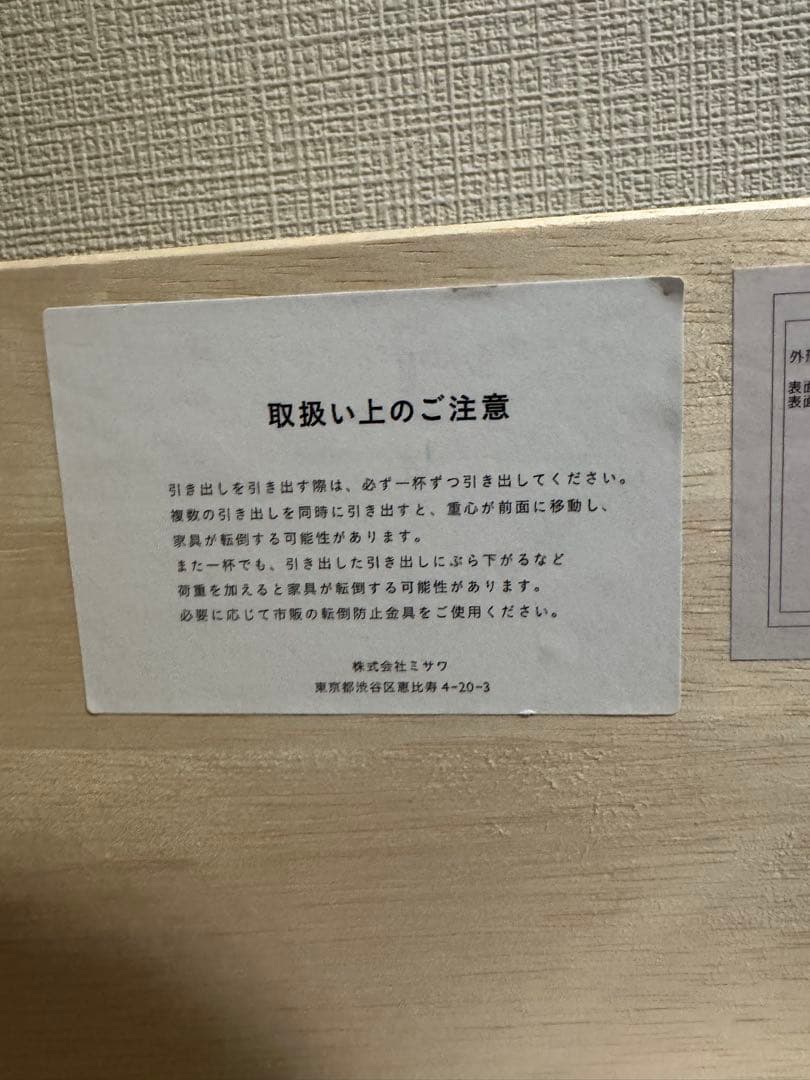 取扱い上のご注意
引き出しを引き出す際は、必ず一杯ずつ引き出してください。
複数の引き出しを同時に引き出すと、重心が前面に移動し、
家具が転倒する可能性があります。
また一杯でも、引き出した引き出しにぶら下がるなど
荷重を加えると家具が転倒する可能性があります。
必要に応じて市販の転倒防止金具をご使用ください。
株式会社ミサワ
東京都渋谷区恵比寿4-20-3
外
表面
表面